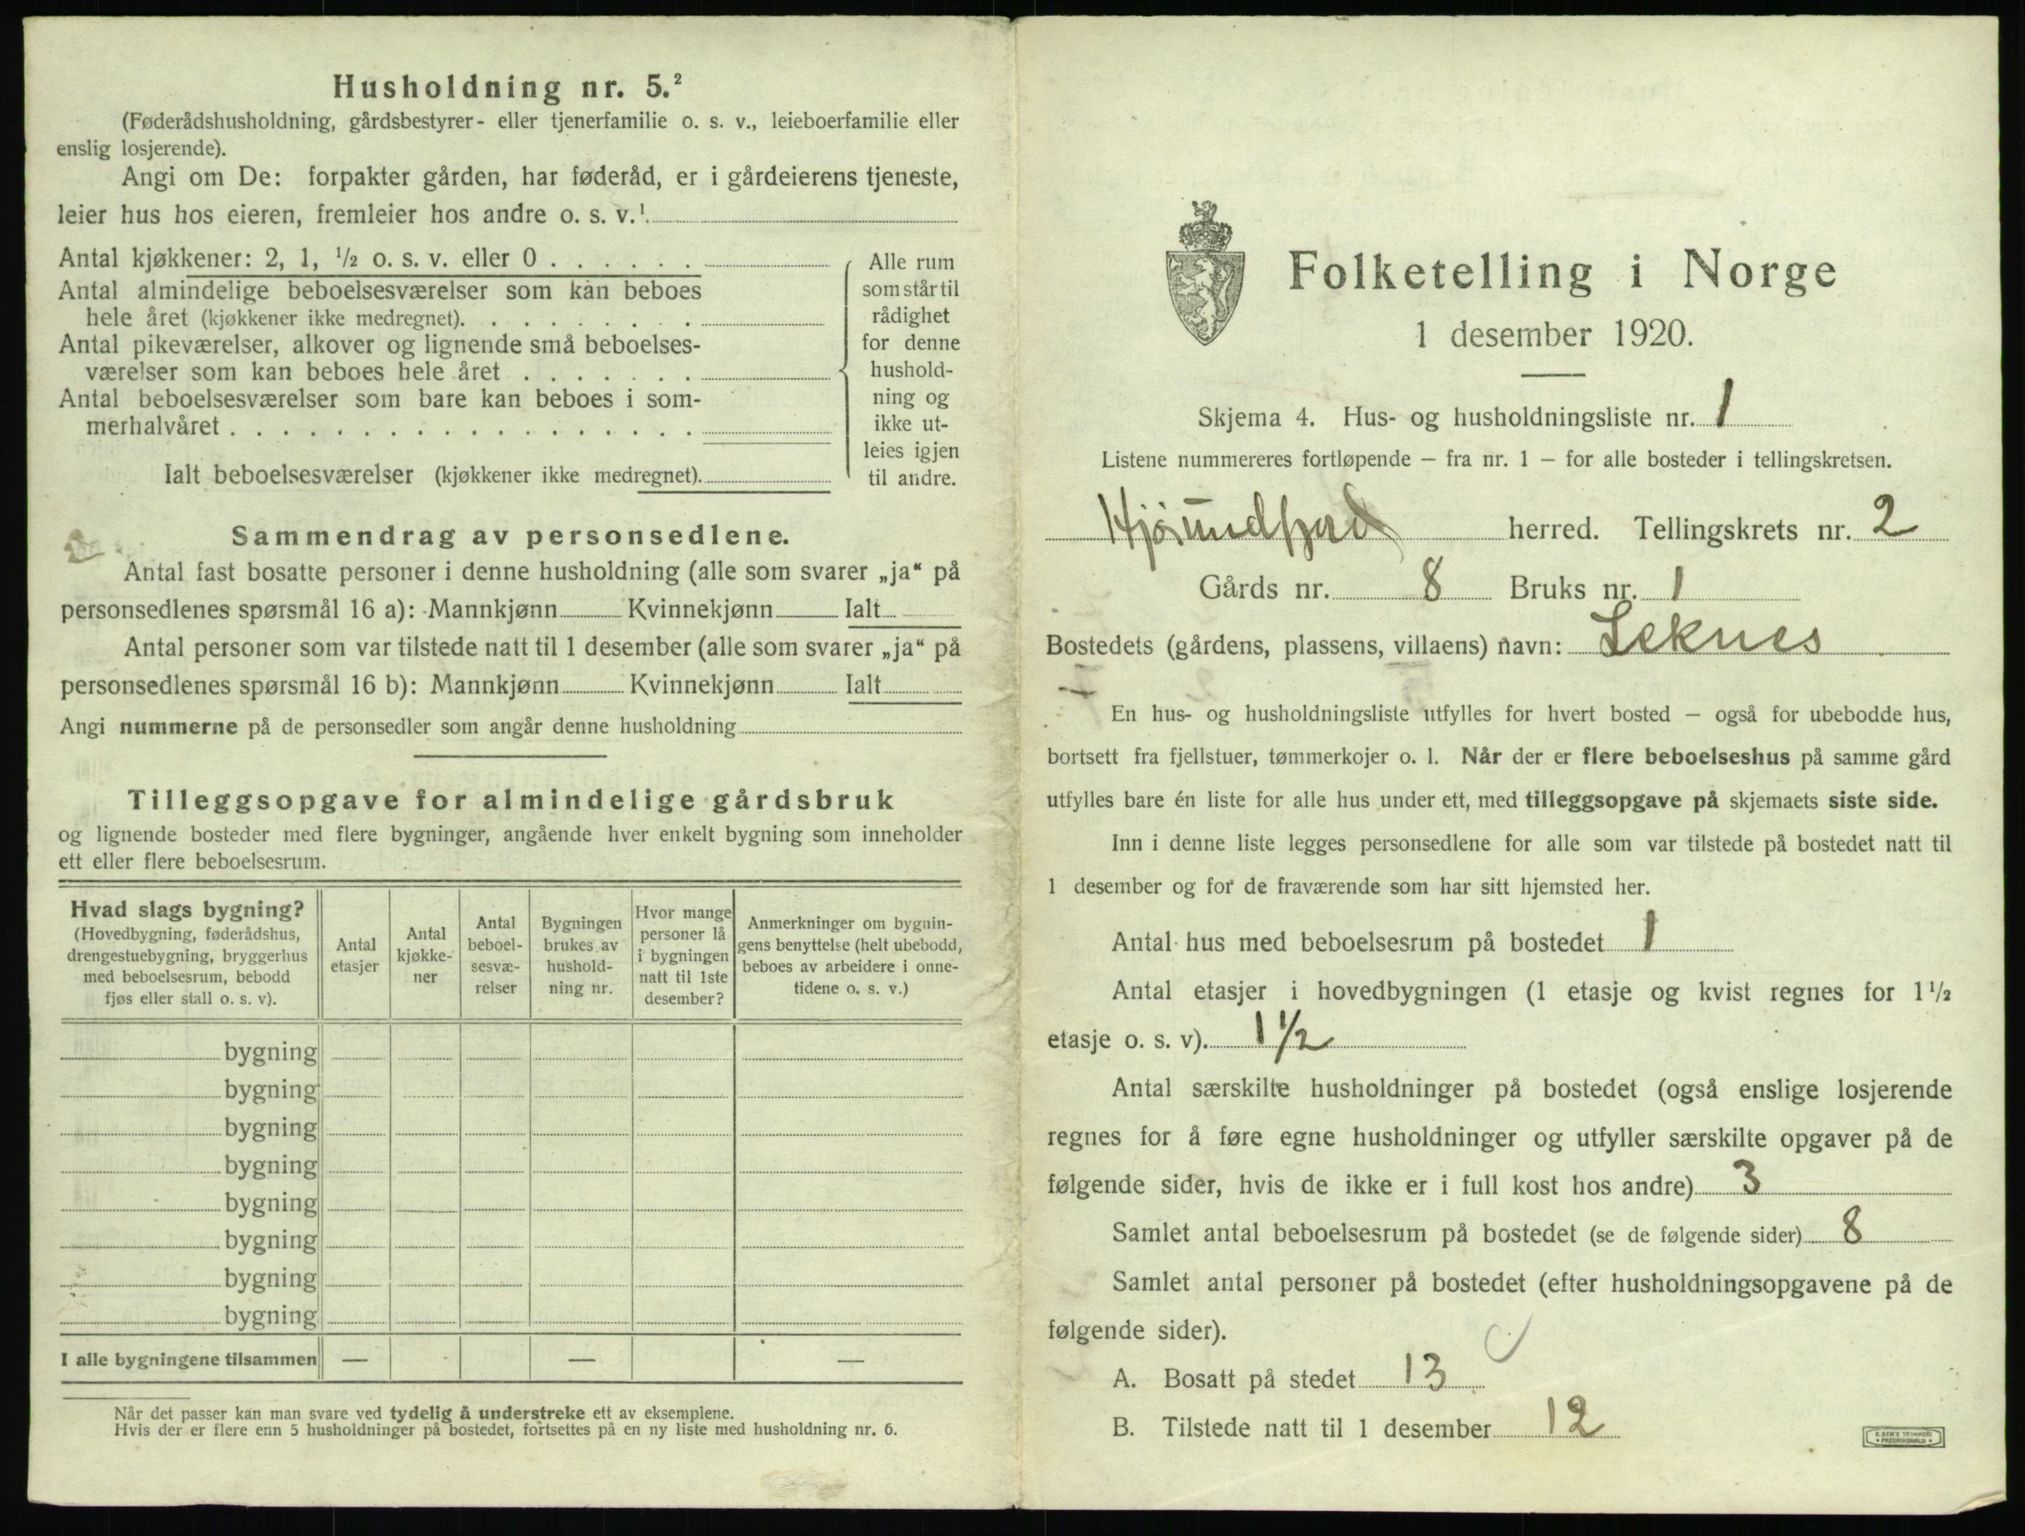 Husholdning nr. 5.²
(Føderådshusholdning, gårdsbestyrer- eller tjenerfamilie o. s. v., leieboerfamilie eller
enslig losjerende).
Angi om De: forpakter gården, har føderåd, er i gårdeierens tjeneste,
leier hus hos eieren, fremleier hos andre o. s. v.¹
Antal kjøkkener: 2, 1, ½ o. s. v. eller 0 . . . . . .
Antal almindelige beboelsesværelser som kan beboes
hele året (kjøkkener ikke medregnet). . . . . . . . .
Antal pikeværelser, alkover og lignende små beboelses-
værelser som kan beboes hele året . . . . . . .
Antal beboelsesværelser som bare kan beboes i som-
merhalvåret . . . . . . . . . . . . . . . . . .
Ialt beboelsesværelser (kjøkkener ikke medregnet).
Alle rum
som står til
rådighet
for denne
hushold-
ning og
ikke ut-
leies igjen
til andre.
Sammendrag av personsedlene.
Antal fast bosatte personer i denne husholdning (alle som svarer „ja“ på
personsedlenes spørsmål 16 a): Mannkjønn Kvinnekjønn Ialt
Antal personer som var tilstede natt til 1 desember (alle som svarer „ja“ på
personsedlenes spørsmål 16 b): Mannkjønn Kvinnekjønn Ialt
Angi nummerne på de personsedler som angår denne husholdning
Tilleggsopgave for almindelige gårdsbruk
og lignende bosteder med flere bygninger, angående hver enkelt bygning som inneholder
ett eller flere beboelsesrum.
Hvad slags bygning?
(Hovedbygning, føderådshus,
drengestuebygning, bryggerhus
med beboelsesrum, bebodd
fjøs eller stall o. s. v).
Antal
etasjer
Antal
kjøkke-
ner
Antal
beboel-
sesvæ-
relser
Bygningen
brukes av
hushold-
ning nr.
Hvor mange
personer lå
i bygningen
natt til 1ste
desember?
Anmerkninger om bygnin-
gens benyttelse (helt ubebodd,
beboes av arbeidere i onne-
tidene o. s. v.)
bygning
bygning
bygning
bygning
bygning
bygning
bygning
bygning
I alle bygningene tilsammen — — —
Når det passer kan man svare ved tydelig å understreke ett av eksemplene.
Hvis der er flere enn 5 husholdninger på bostedet, fortsettes på en ny liste med husholdning nr. 6.
Folketelling i Norge
1 desember 1920.
Skjema 4. Hus- og husholdningsliste nr. 1
Listene nummereres fortløpende — fra nr. 1 — for alle bosteder i tellingskretsen.
Hjørundfjord herred. Tellingskrets nr. 2
Gårds nr. 8 Bruks nr. 1
Bostedets (gårdens, plassens, villaens) navn: Leknes
En hus- og husholdningsliste utfylles for hvert bosted — også for ubebodde hus,
bortsett fra fjellstuer, tømmerkojer o. l. Når der er flere beboelseshus på samme gård
utfylles bare én liste for alle hus under ett, med tilleggsopgave på skjemaets siste side.
Inn i denne liste legges personsedlene for alle som var tilstede på bostedet natt til
1 desember og for de fraværende som har sitt hjemsted her.
Antal hus med beboelsesrum på bostedet 1
Antal etasjer i hovedbygningen (1 etasje og kvist regnes for 1½
etasje o. s. v). 1½
Antal særskilte husholdninger på bostedet (også enslige losjerende
regnes for å føre egne husholdninger og utfyller særskilte opgaver på de
følgende sider, hvis de ikke er i full kost hos andre) 3
Samlet antal beboelsesrum på bostedet (se de følgende sider) 8
Samlet antal personer på bostedet (efter husholdningsopgavene på de
følgende sider).
A. Bosatt på stedet 13
B. Tilstede natt til 1 desember 12